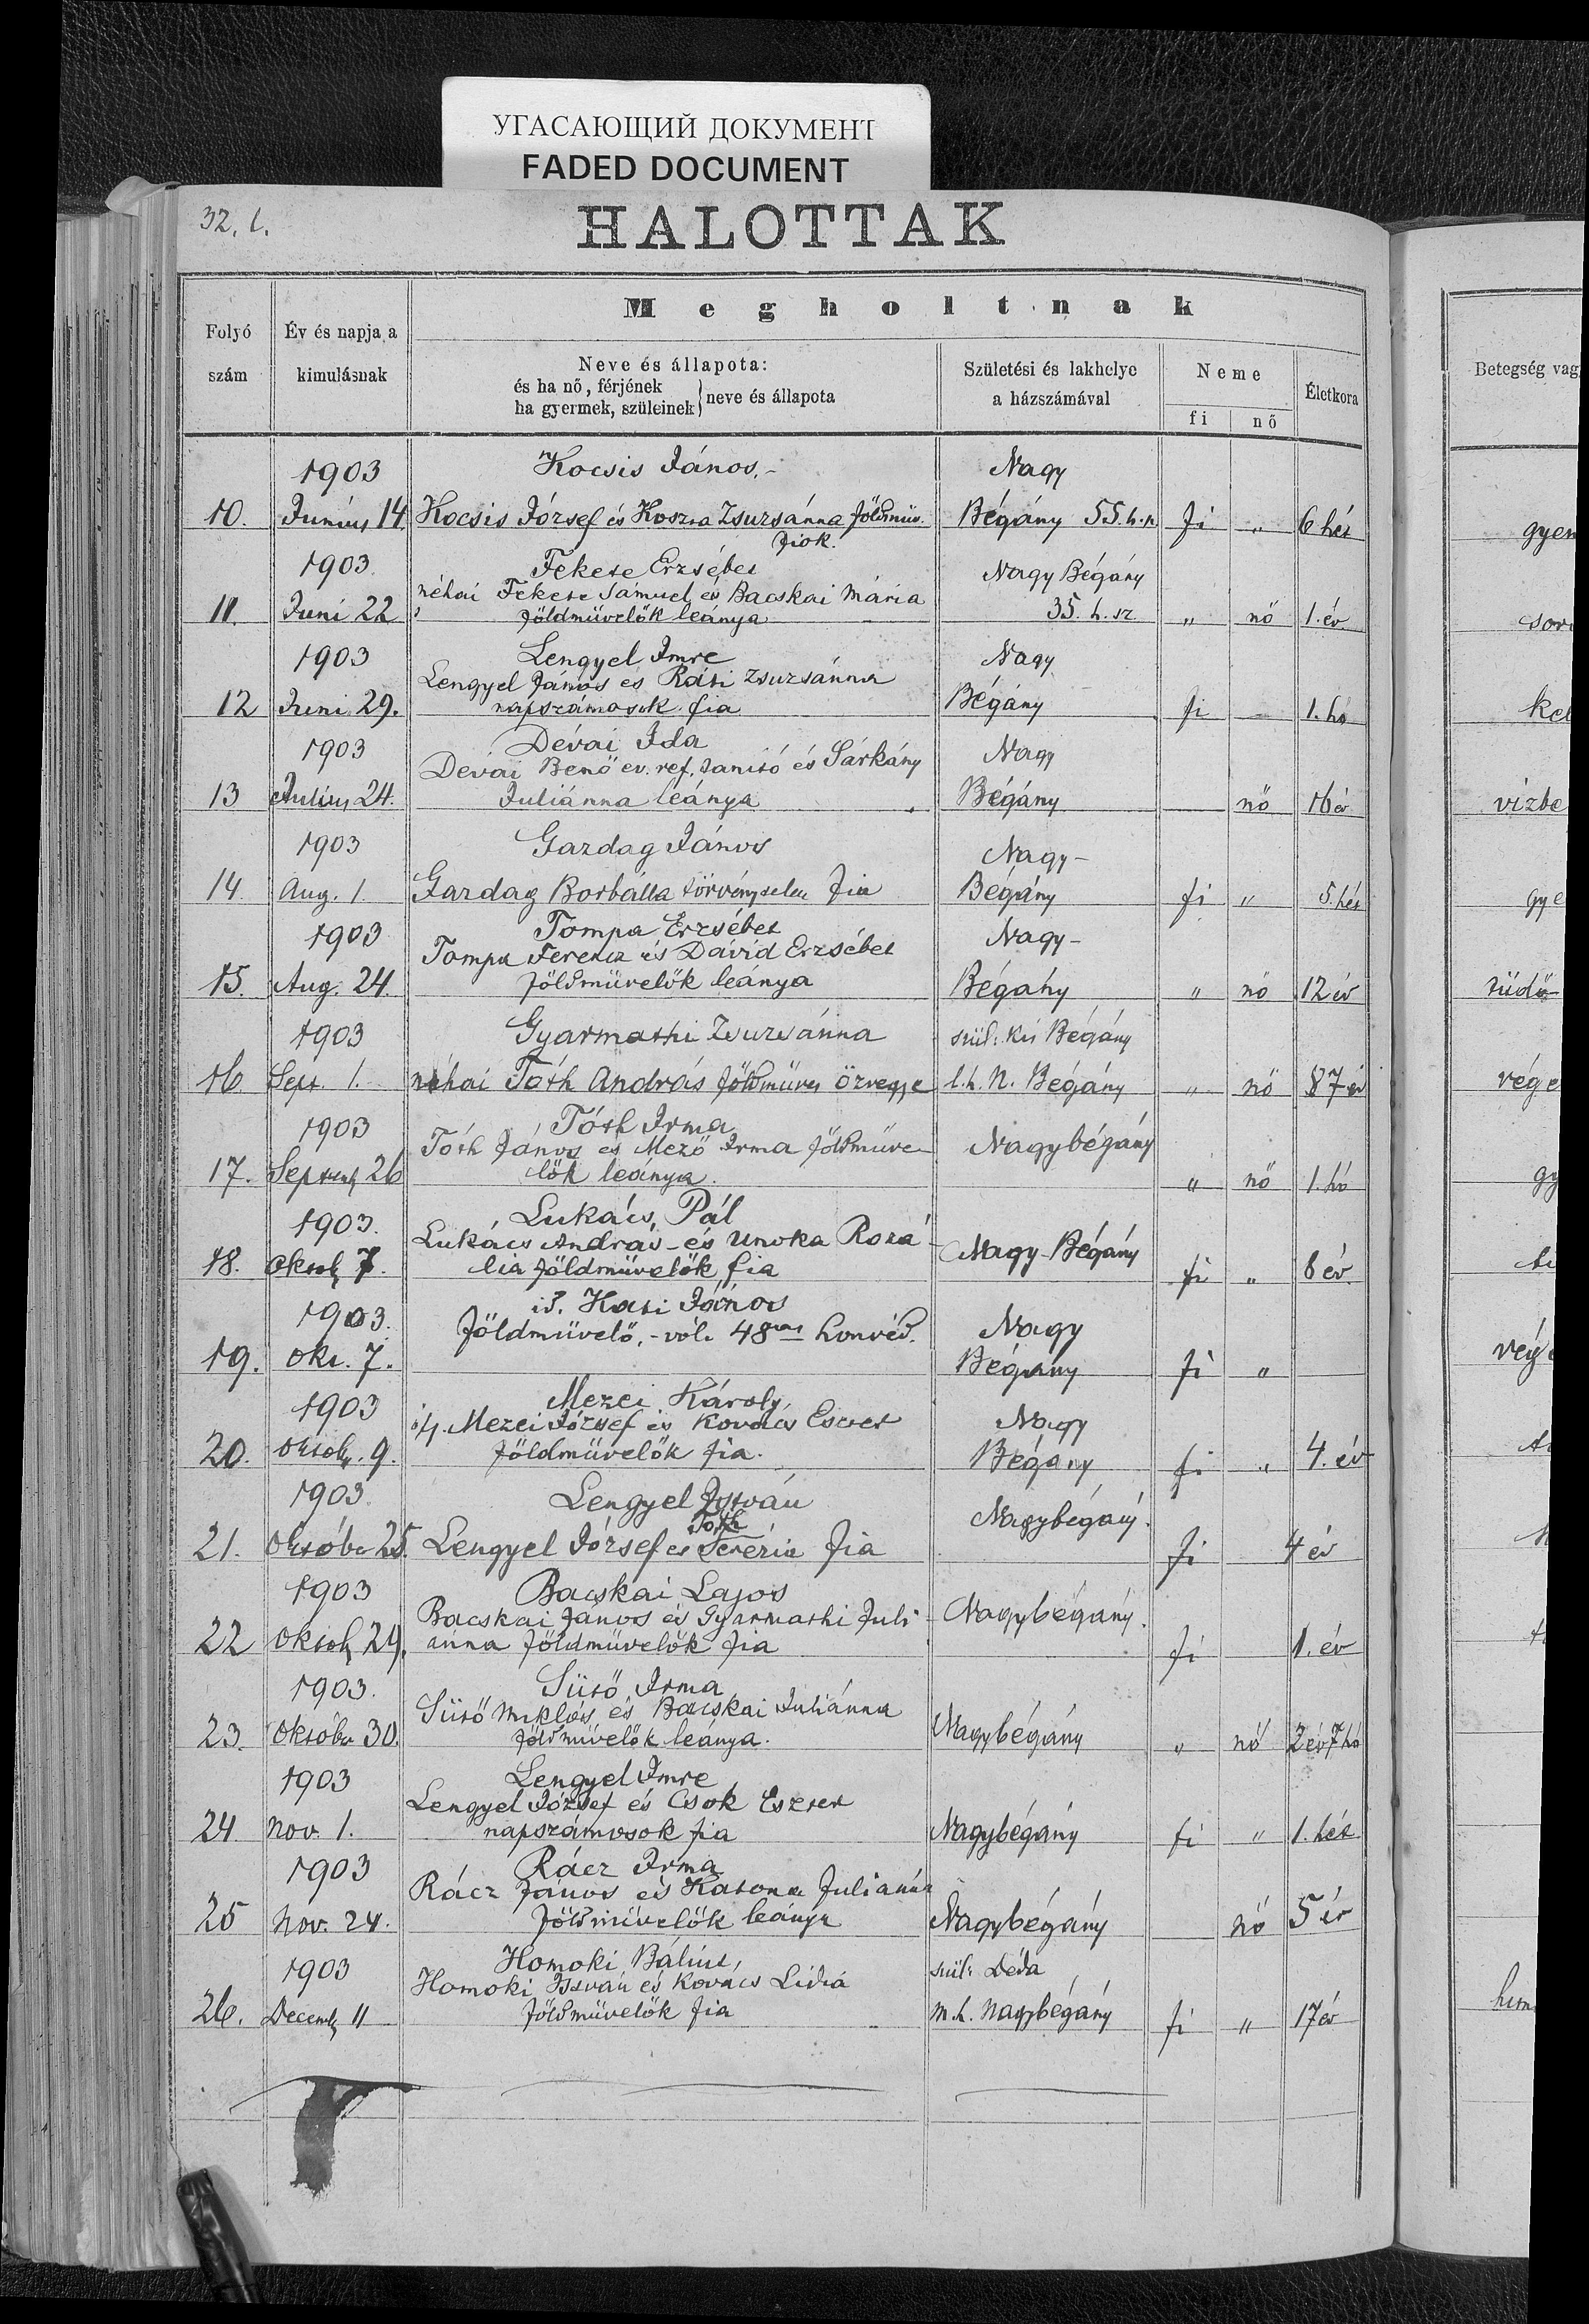 УГАСАЮЩИЙ ДОКУМЕНТ
FADED DOCUMENT
32. l.
HALOTTAK
Folyó szám
Év és napja a kimulásnak
Megholtnak
Neve és állapota:
és ha nő, férjének
ha gyermek, szüleinek } neve és állapota
Születési és lakhelye
a házszámával
Neme
fi nő
Életkora
Betegség vag
1903 Kocsis János.- Nagy
10. Június 14. Kocsis József és Koszta Zsuzsánna földmüv. Bégány 55. h. n fi „ 6 hét gyen
fiok.
1903. Fekete Erzsébet Nagy Bégány
néhai Fekete Sámuel és Bacskai Mária
11. Juni 22 földmüvelők leánya 35. h. sz. „ nő 1. év.
1903 Lengyel Imre Nagy
Lengyel János és Ráti Zsuzsánna
12 Juni 29. napszámosok fia Bégány fi 1. hó
1903 Dévai Ida Nagy
Dévai Benő ev. ref. tanitó és Sarkány
13 Julius 24. Juliánna leánya Bégány nő 16 év vizbe
1903 Gazdag János Nagy-
14. Aug. 1. Gazdag Borbálla törvénytelen fia Bégány fi „ 5. hét gye
1903 Tompa Erzsébet Nagy-
Tompa Ferencz és Dávid Erzsébet
15. Aug. 24. földmüvelők leánya Bégány „ nő 12 év tüdő-
1903 Gyarmathi Zsuzsánna szül: Kis Bégány
16 Sept. 1. néhai Tóth András földmüves özvegye l. h. N. Bégány „ nő 87 év vége
1903 Tóth Irma Nagybégány
Tóth János és Mező Irma földmüve-
17. Septemb 26 lők leánya. „ nő 1. hó gy
1903. Lukács Pál
Lukács András és Unoka Rozá- Nagy-Bégány
18. Oktob 7. lia földmüvelők fia fi „ 8 év.
1903. id. Kati János
Földmüvelő, - völt 48as honvéd. Nagy
19. Okt. 7. Bégány fi „ vég
1903 Mezei Károly,
ifj. Mezei József és Kovács Eszter Nagy
20. Oktob. 9. földmüvelők fia. Bégány fi „ 4. év
1903. Lengyel István Nagybégány.
Tóth
21. Októbr 25. Lengyel József és Terézia fia fi 4 év
1903 Bacskai Lajos
Bacskai János és Gyarmathi Juli- Nagybégány.
22 Oktob 29. ánna földmüvelők fia fi 1. év
1903. Sütő Irma
Sütő Miklós és Bacskai Juliánna
23. Októbr 30. földmüvelők leánya. Nagybégány „ nő 2 év 7 hó
1903 Lengyel Imre
Lengyel József és Csok Eszter
24 Nov. 1. napszámosok fia Nagybégány fi „ 1. hét
1903 Rácz Irma
Rácz János és Katona Juliánna
25 Nov. 24. földmüvelők leánya Nagybégány nő 5 év
1903 Homoki Bálint, szül: Déda
Homoki István és Kovács Lidia
26. Decemb 11 földmüvelők fia m. h. Nagybégány fi „ 17 év